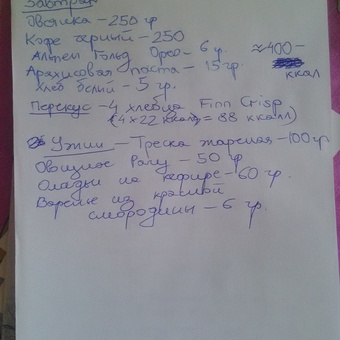 Завтрак
Овсянка - 250 гр
Кофе черный - 250
Альпен Гольд Орео - 6 гр.
≈400-
ккал
Арахисовая паста - 15 гр.
Хлеб белый - 5 гр.
Перекус - 4 хлебца Finn Crisp
(4 x 22 ккал = 88 ккалл)
Ужин - Треска жареная - 100 гр
Овощное Рагу - 50 гр
Оладьи на кефире - 60 гр.
Варенье из красной
смородины - 6 гр.